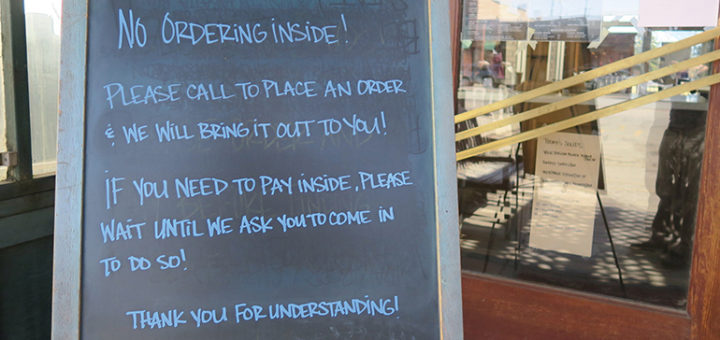 NO ORDERING INSIDE!
PLEASE CALL TO PLACE AN ORDER
& WE WILL BRING IT OUT TO YOU!
IF YOU NEED TO PAY INSIDE, PLEASE
WAIT UNTIL WE ASK YOU TO COME IN
TO DO SO!
THANK YOU FOR UNDERSTANDING!